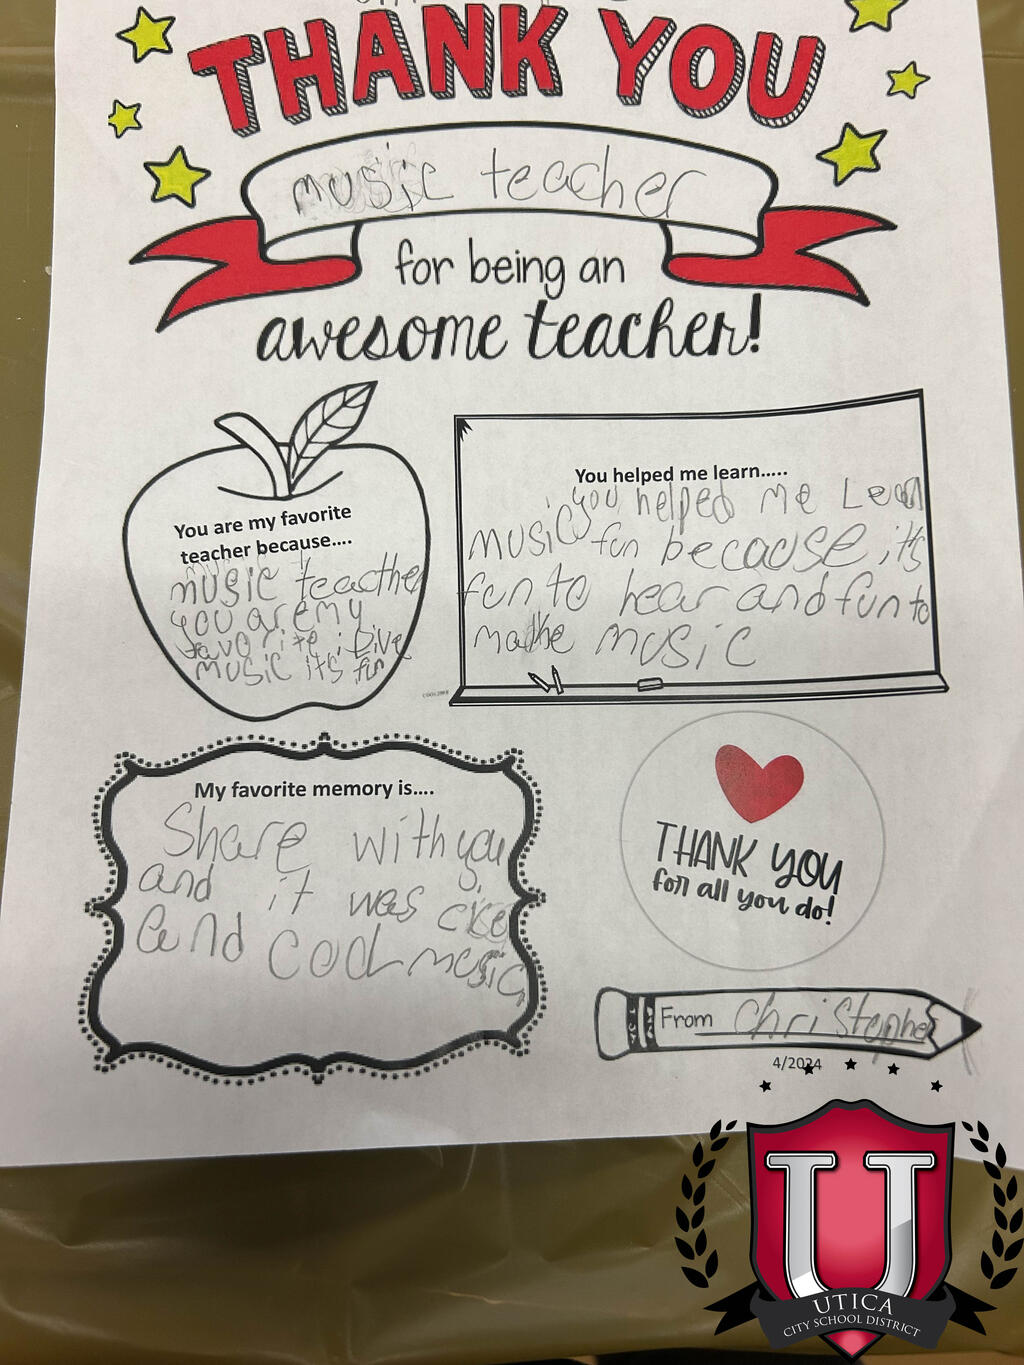 THANK YOU
music teacher
for being an
awesome teacher!
You are my favorite
teacher because....
music teacthe
you are my
favorite i
music it's fun
You helped me learn.....
you helped me Lean
music fun because it's
fun to hear and fun to
make music
My favorite memory is....
Share with you
and it was
and cool music
THANK YOU
for all you do!
From Christopher
4/2024
U
UTICA
CITY SCHOOL DISTRICT